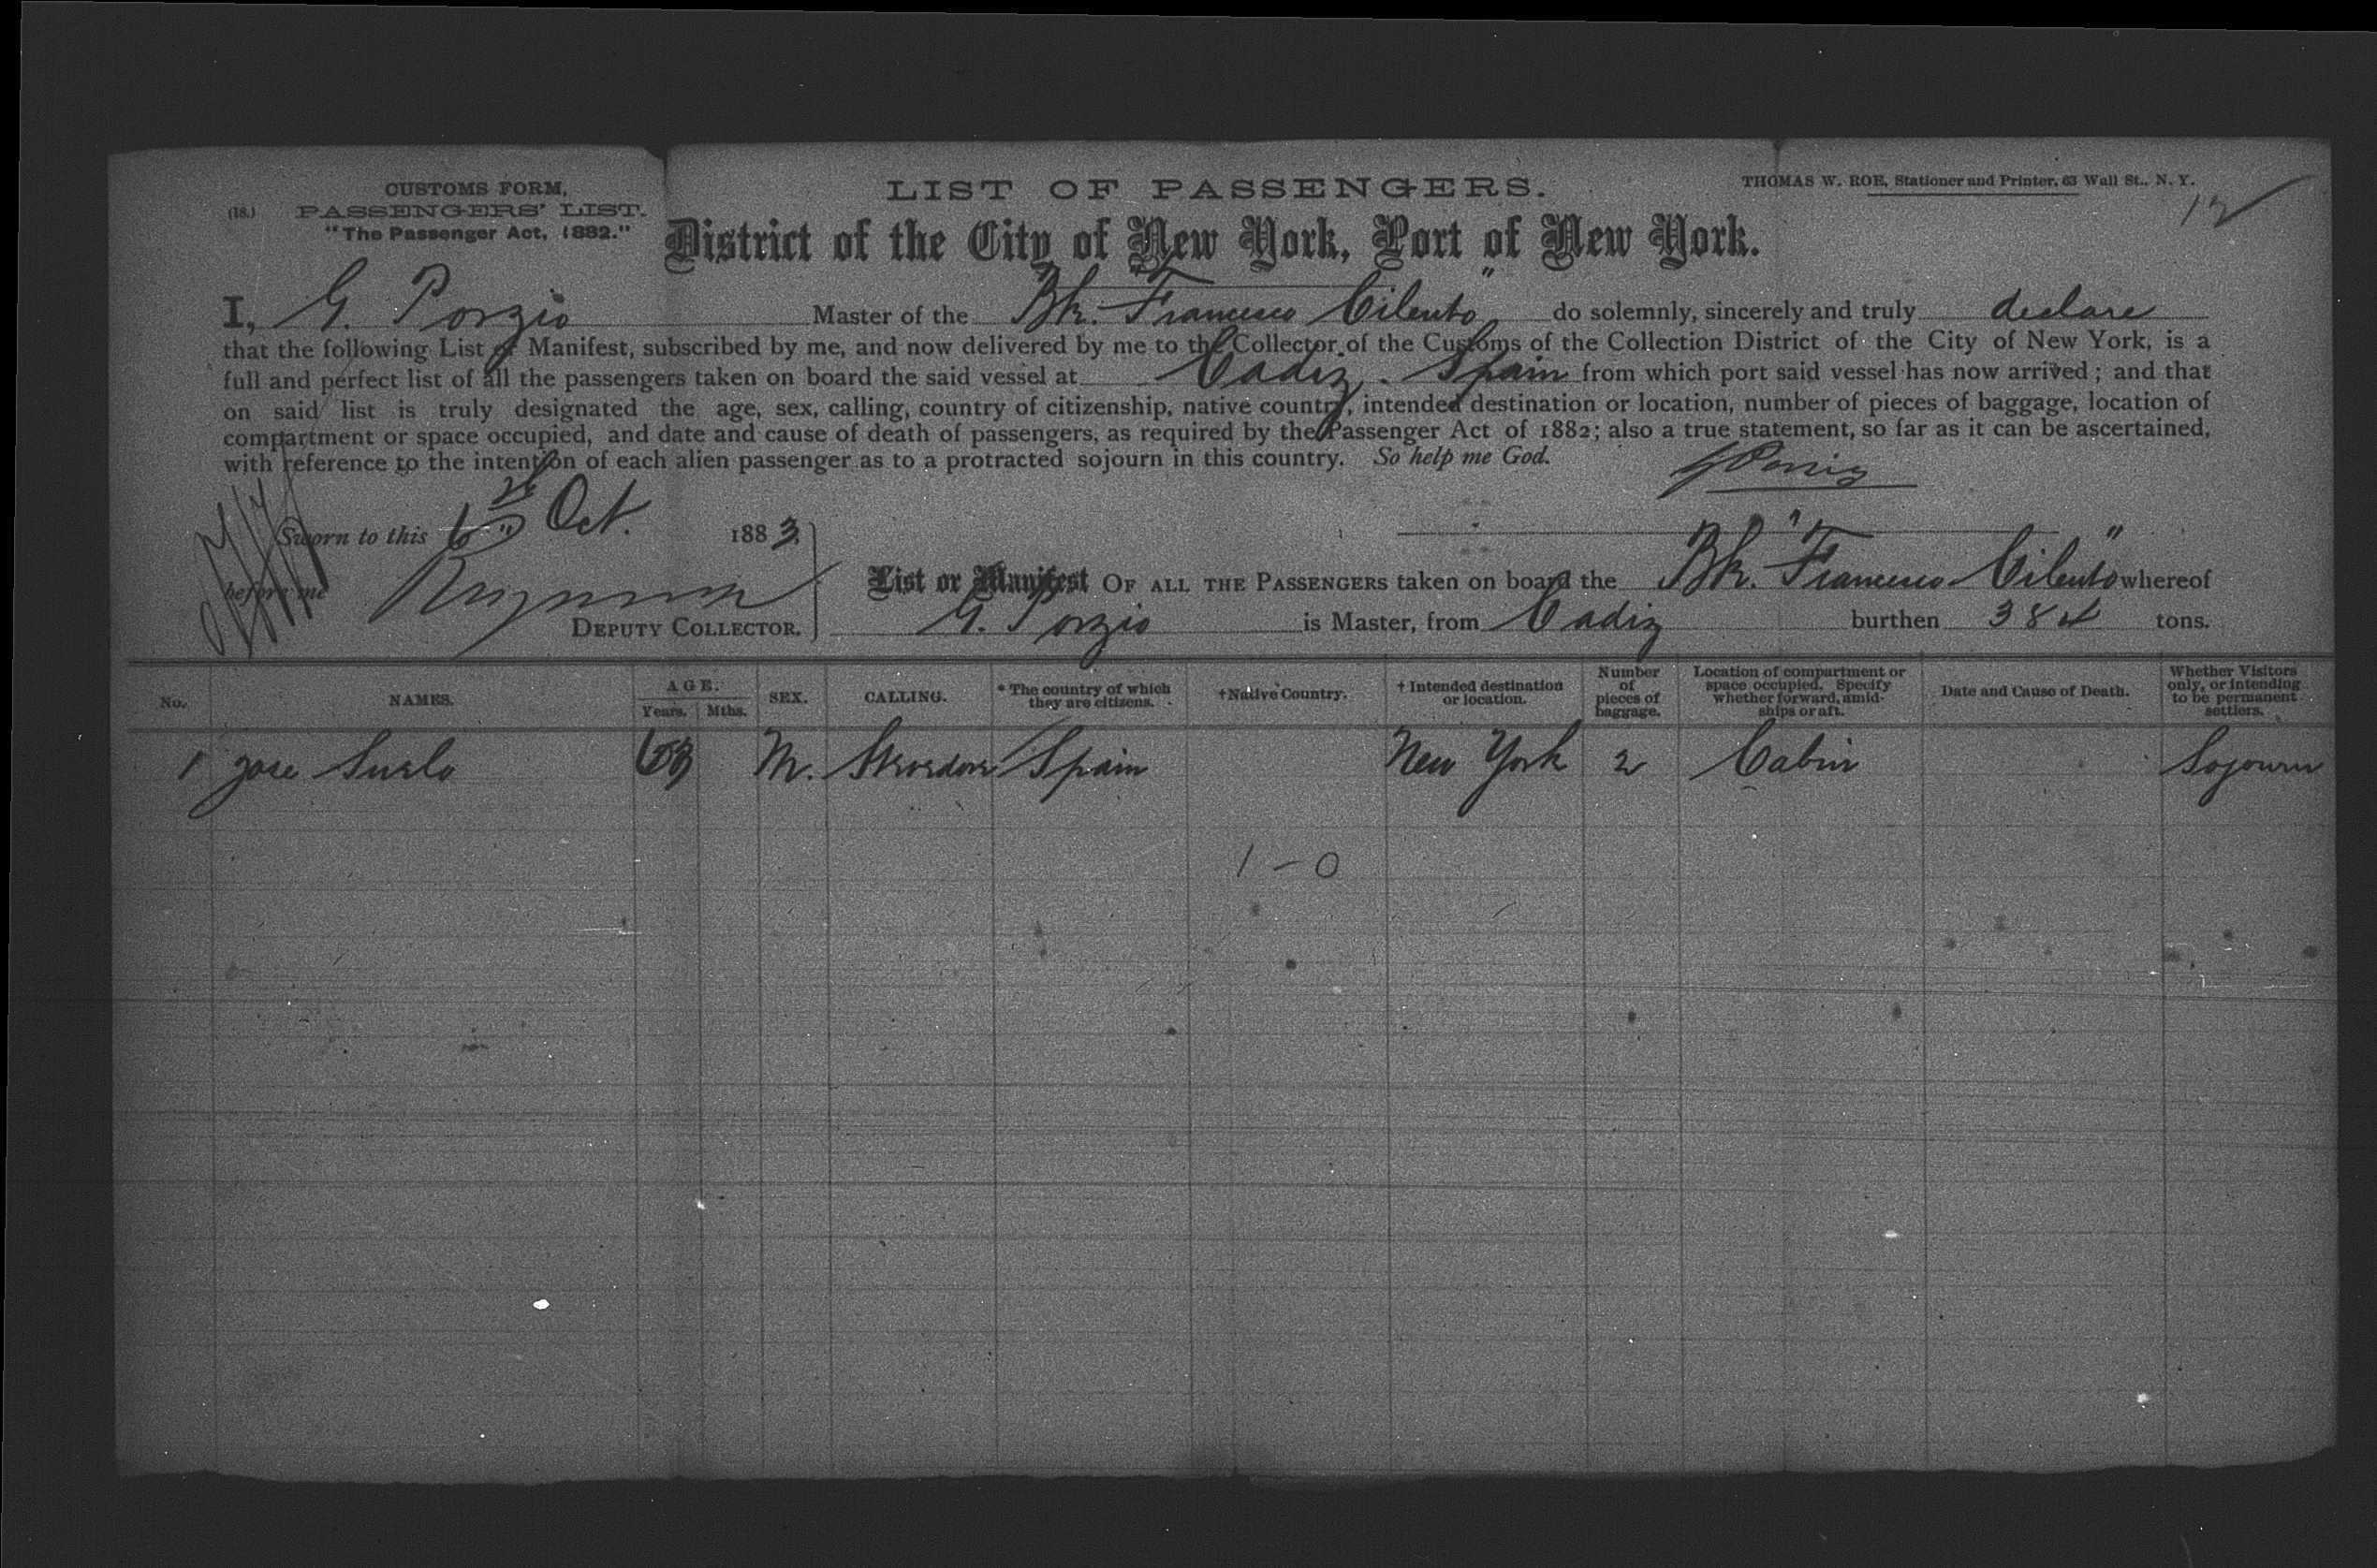 CUSTOMS FORM,
(18.) PASSENGERS' LIST.
"The Passenger Act, 1882."
LIST OF PASSENGERS.
THOMAS W. ROE, Stationer and Printer, 63 Wall St., N. Y.
12
District of the City of New York, Port of New York.
I, G. Porzio Master of the Bk. "Francesco Cilento" do solemnly, sincerely and truly declare
that the following List or Manifest, subscribed by me, and now delivered by me to the Collector of the Customs of the Collection District of the City of New York, is a
full and perfect list of all the passengers taken on board the said vessel at Cadiz, Spain from which port said vessel has now arrived; and that
on said list is truly designated the age, sex, calling, country of citizenship, native country, intended destination or location, number of pieces of baggage, location of
compartment or space occupied, and date and cause of death of passengers, as required by the Passenger Act of 1882; also a true statement, so far as it can be ascertained,
with reference to the intention of each alien passenger as to a protracted sojourn in this country. So help me God.
Sworn to this 6th Oct. 1883.
before me
DEPUTY COLLECTOR.
List or Manifest OF ALL THE PASSENGERS taken on board the Bk. "Francesco Cilento" whereof
G. Porzio is Master, from Cadiz burthen 384 tons.
No. NAMES. AGE. Years. Mths. SEX. CALLING. * The country of which they are citizens. † Native Country. † Intended destination or location. Number of pieces of baggage. Location of compartment or space occupied. Specify whether forward, amidships or aft. Date and Cause of Death. Whether Visitors only, or intending to be permanent settlers.
1 Jose M. Spain New York 2 Cabin Sojourn
1 - 0